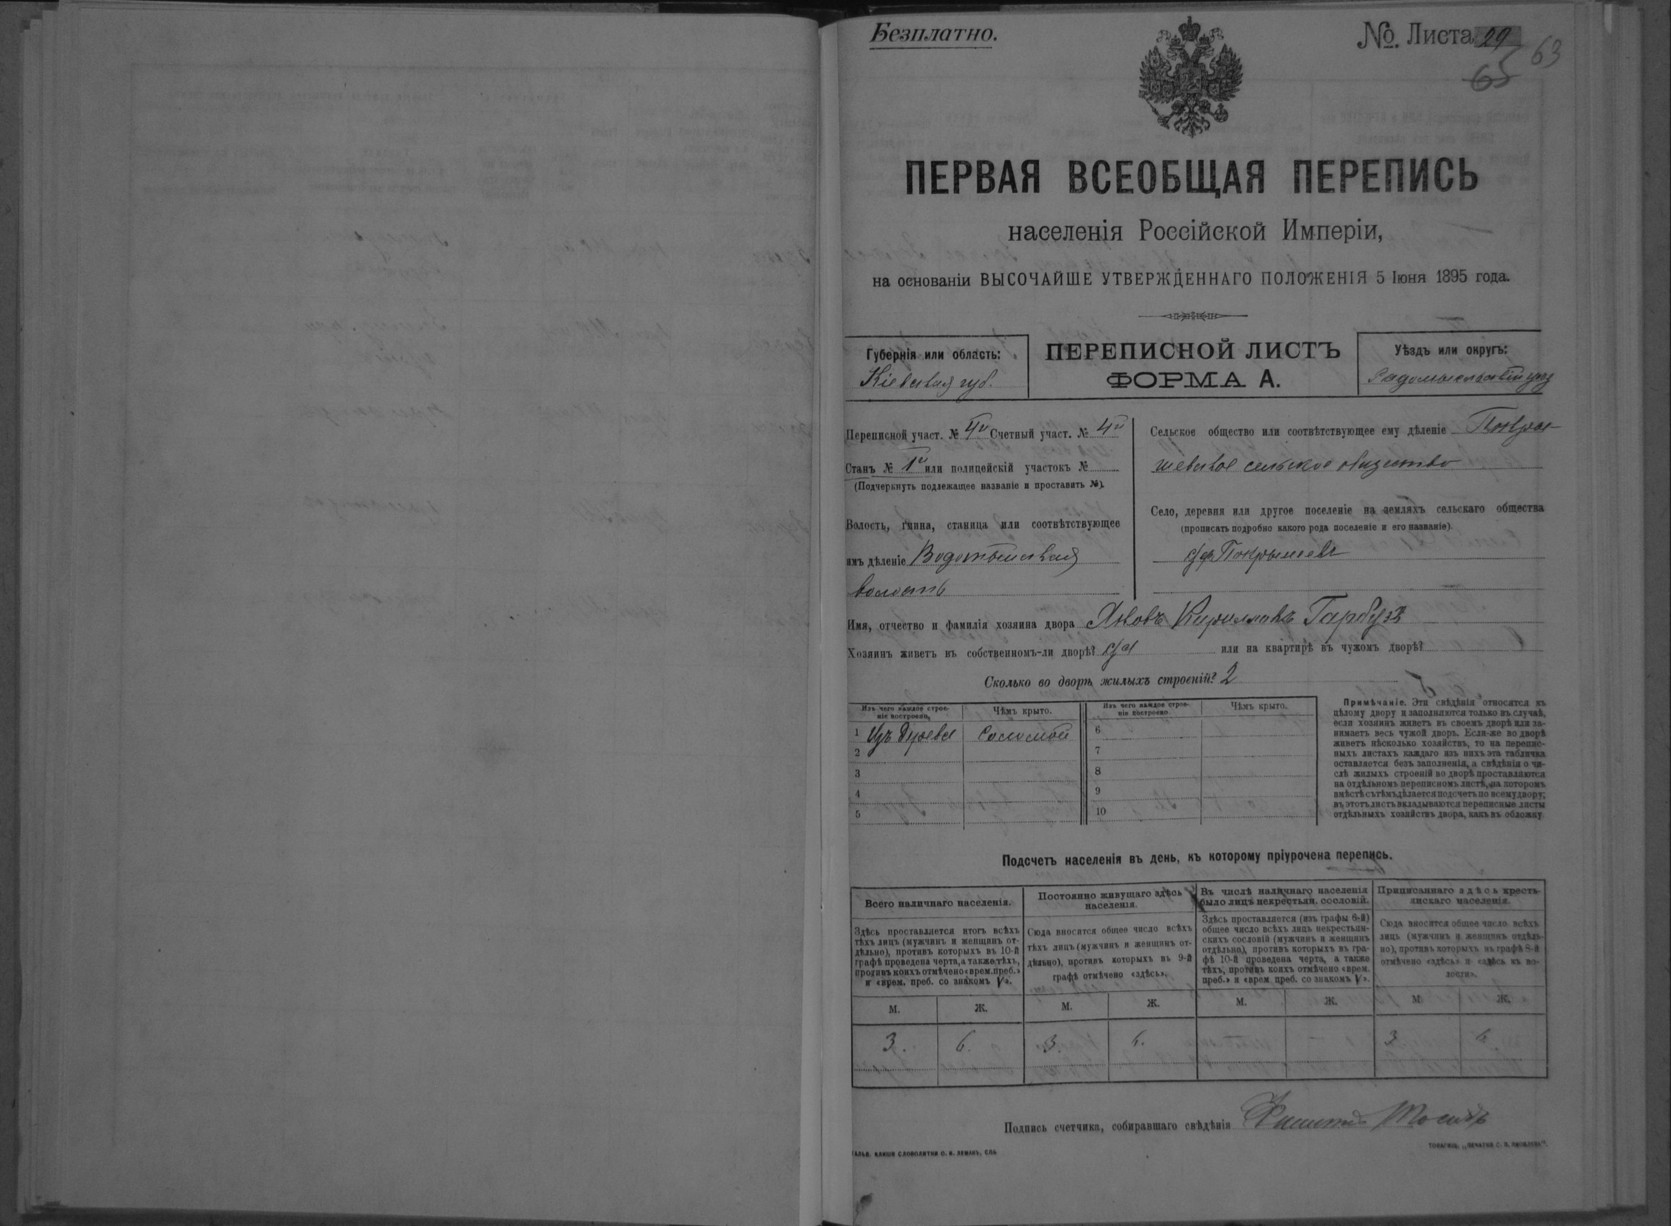 Безплатно.
№ Листа 29
63
65
ПЕРВАЯ ВСЕОБЩАЯ ПЕРЕПИСЬ
населенія Россійской Имперіи,
на основаніи ВЫСОЧАЙШЕ УТВЕРЖДЕННАГО ПОЛОЖЕНІЯ 5 Іюня 1895 года.
Губернія или область:
Кіевская губ.
ПЕРЕПИСНОЙ ЛИСТЪ
ФОРМА А.
Уѣздъ или округъ:
Радомысльскій
Переписной участ. № 4й Счетный участ. № 4й
Станъ № 1й или полицейскій участокъ №
(Подчеркнуть подлежащее названіе и проставить №).
Волость, гмина, станица или соотвѣтствующее
имъ дѣленіе Водотыйская
волость
Сельское общество или соотвѣтствующее ему дѣленіе Покры-
шевское сельское общество
Село, деревня или другое поселеніе на земляхъ сельскаго общества
(прописать подробно какого рода поселеніе и его названіе).
Покрышевъ
Имя, отчество и фамилія хозяина двора Яковъ Кириловъ Гарбузъ
Хозяинъ живетъ въ собственномъ-ли дворѣ? да или на квартирѣ въ чужомъ дворѣ?
Сколько во дворѣ жилыхъ строеній? 2
Изъ чего каждое строе-
ніе построено.
Чѣмъ крыто.
1 Изъ дерева Соломой
2
3
4
5
Изъ чего каждое строе-
ніе построено.
Чѣмъ крыто.
6
7
8
9
10
Примѣчаніе. Эти свѣдѣнія относятся къ
цѣлому двору и заполняются только въ случаѣ,
если хозяинъ живетъ въ своемъ дворѣ или за-
нимаетъ весь чужой дворъ. Если-же во дворѣ
живетъ нѣсколько хозяйствъ, то на перепис-
ныхъ листахъ каждаго изъ нихъ эта табличка
оставляется безъ заполненія, а свѣдѣнія о чи-
слѣ жилыхъ строеній во дворѣ проставляются
на отдѣльномъ переписномъ листѣ, на которомъ
вмѣстѣ съ тѣмъ дѣлается подсчетъ по всему двору;
въ этотъ листъ вкладываются переписные листы
отдѣльныхъ хозяйствъ двора, какъ въ обложку.
Подсчетъ населенія въ день, къ которому пріурочена перепись.
Всего наличнаго населенія.
Здѣсь проставляется итогъ всѣхъ
тѣхъ лицъ (мужчинъ и женщинъ от-
дѣльно), противъ которыхъ въ 10-й
графѣ проведена черта, а также тѣхъ,
противъ коихъ отмѣчено «врем. преб.»
и «врем. преб. со знакомъ V».
Постоянно живущаго здѣсь
населенія.
Сюда вносится общее число всѣхъ
тѣхъ лицъ (мужчинъ и женщинъ от-
дѣльно), противъ которыхъ въ 9-й
графѣ отмѣчено «здѣсь».
Въ числѣ наличнаго населенія
было лицъ некрестьян. сословій.
Здѣсь проставляется (изъ графы 6-й)
общее число всѣхъ лицъ некрестьян-
скихъ сословій (мужчинъ и женщинъ
отдѣльно), противъ которыхъ въ гра-
фѣ 10-й проведена черта, а также
тѣхъ, противъ коихъ отмѣчено «врем.
преб.» и «врем. преб. со знакомъ V».
Приписаннаго здѣсь кресть-
янскаго населенія.
Сюда вносится общее число всѣхъ
лицъ (мужчинъ и женщинъ отдѣль-
но), противъ которыхъ въ графѣ 8-й
отмѣчено «здѣсь» и «здѣсь въ во-
лости».
М. Ж. М. Ж. М. Ж. М. Ж.
3. 6. 3. 6. 3 6
Подпись счетчика, собиравшаго свѣдѣнія